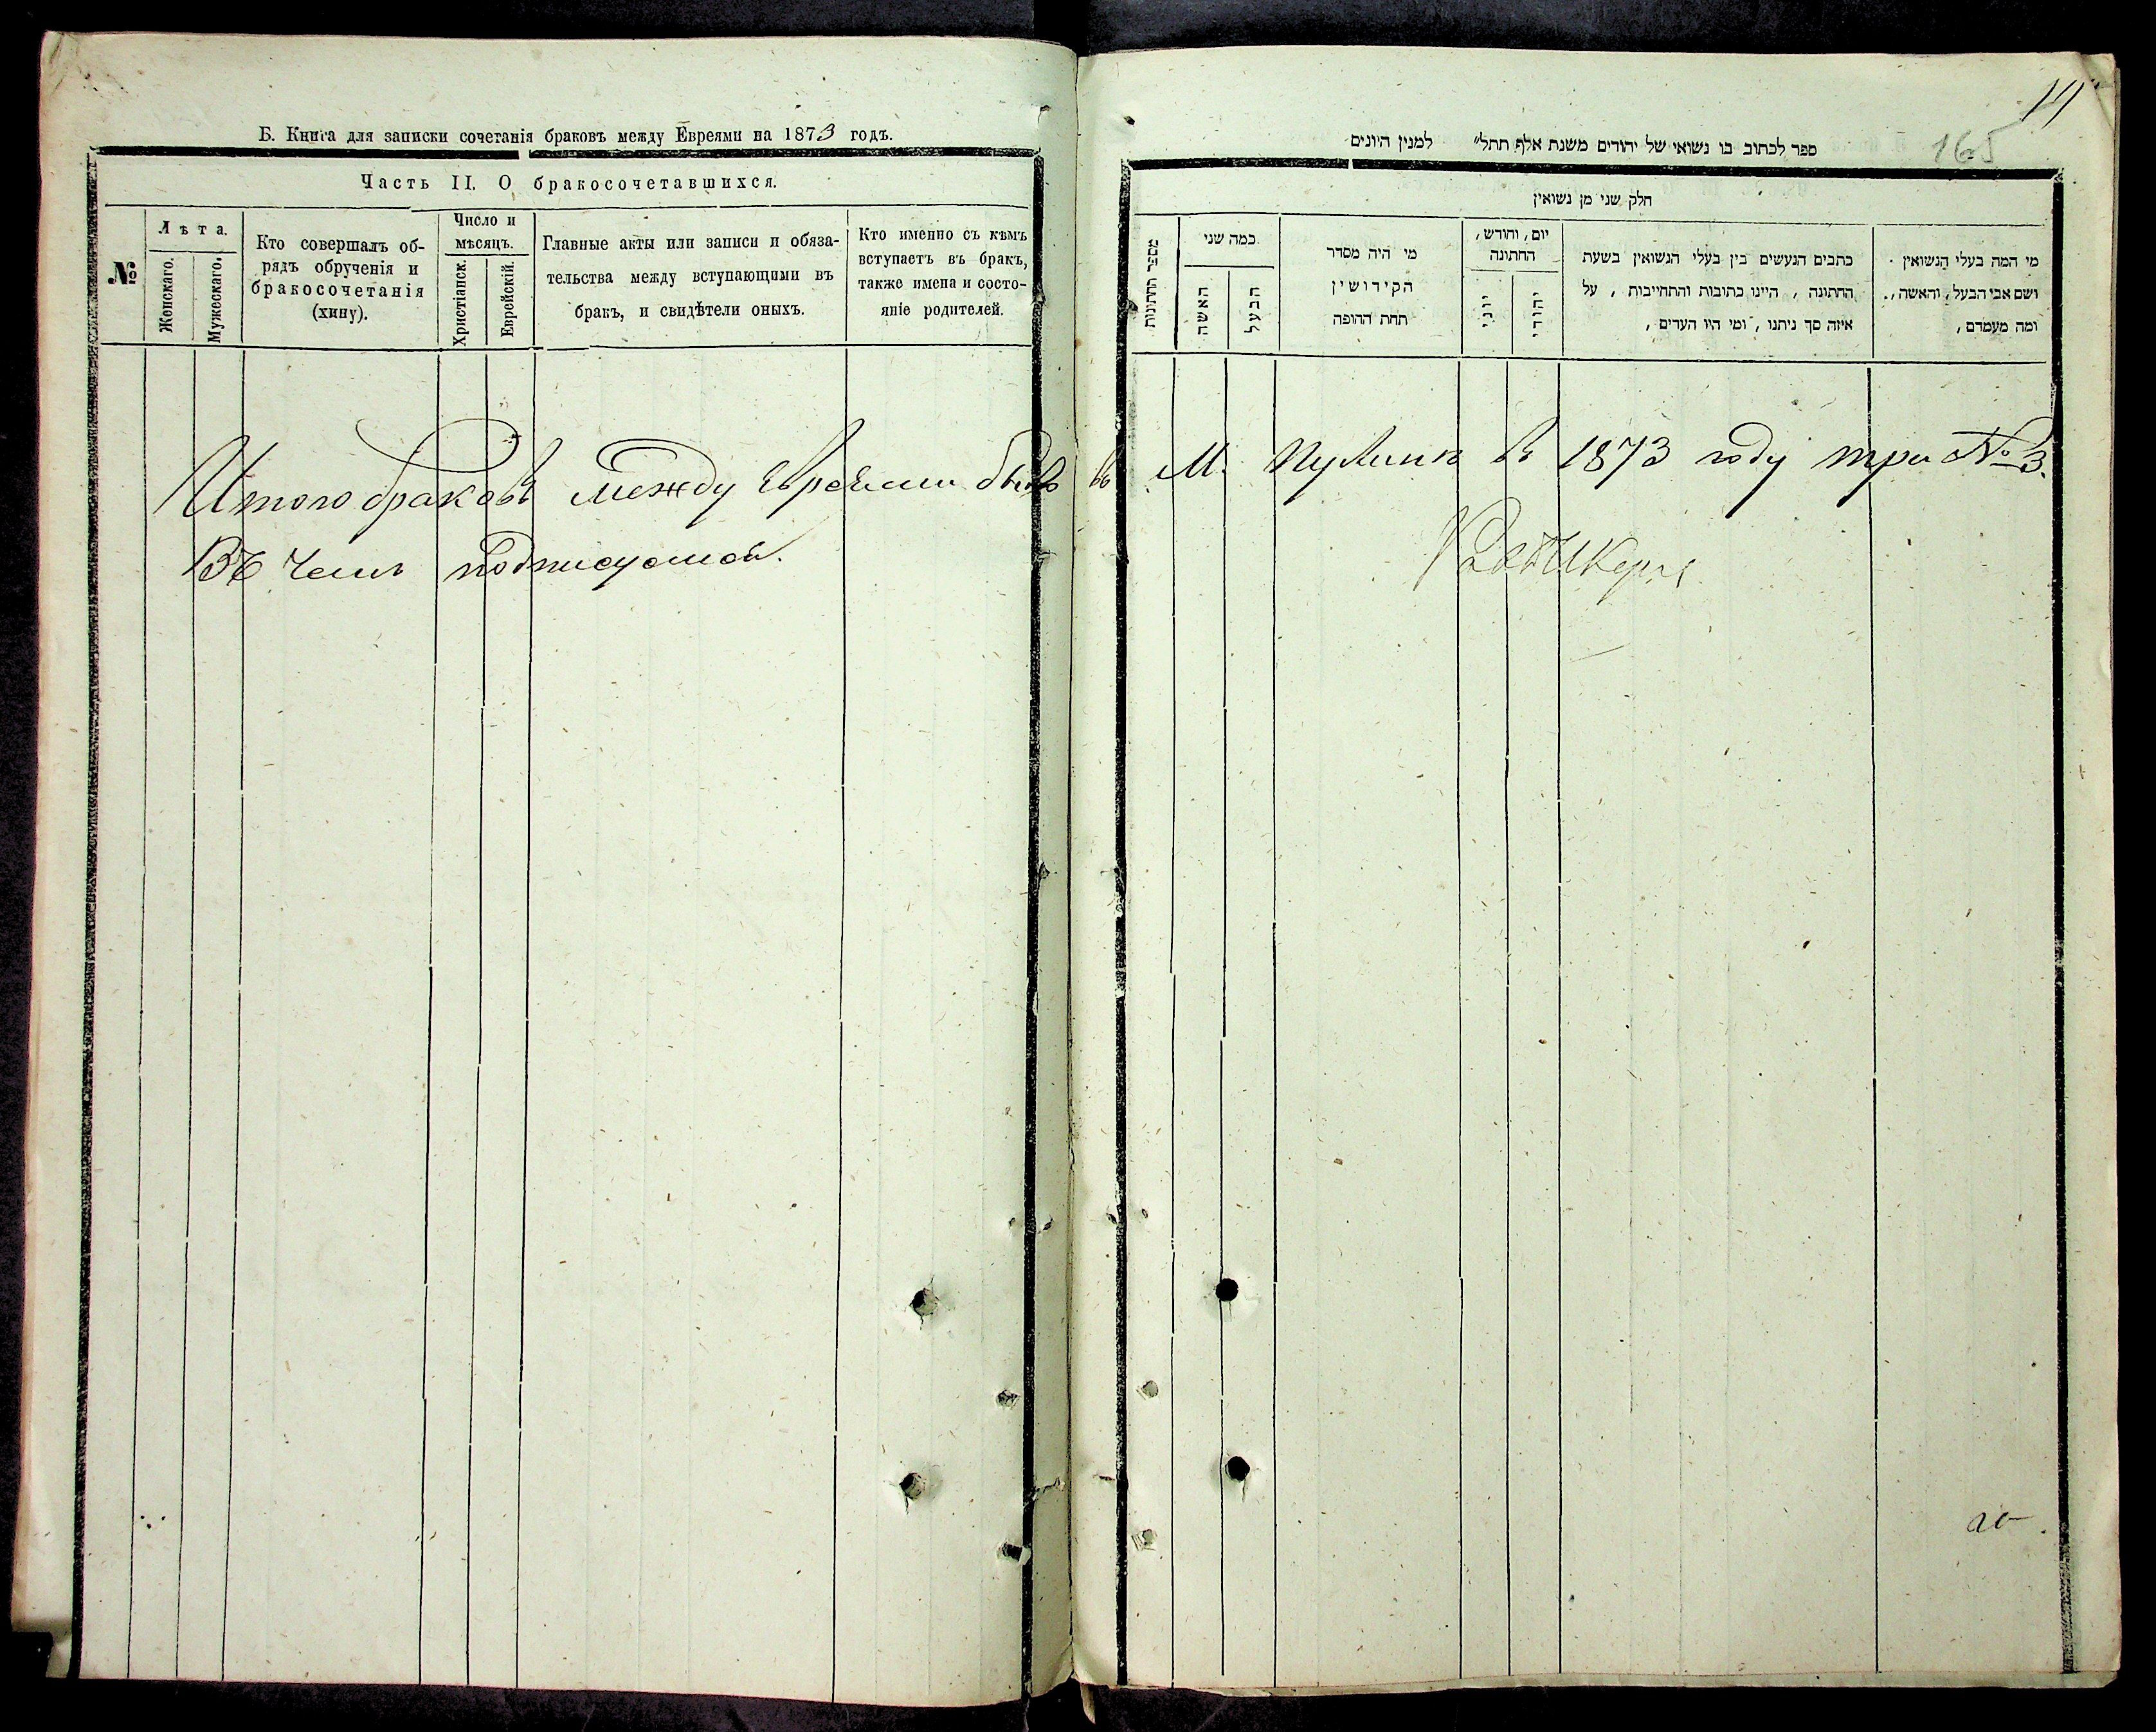 Б. Книга для записки сочетанія браковъ между Евреями на 1873 годъ.
Часть II. О бракосочетавшихся.
№
Лѣта.
Женскаго.
Мужескаго.
Кто совершалъ об-
рядъ обрученія и
бракосочетанія
(хину).
Число и
мѣсяцъ.
Христіанск.
Еврейскій.
Главные акты или записи и обяза-
тельства между вступающими въ
бракъ, и свидѣтели оныхъ.
Кто именно съ кѣмъ
вступаетъ въ бракъ,
также имена и состо-
яніе родителей.
Итого браковъ между евреями было въ М. Пулинъ въ 1873 году три № 3.
Въ чемъ
141
165
ספר לכתוב בו נשואי של יהודים משנת אלף תתל״ למנין היונים
חלק שני מן נשואין
מספר החתונות
כמה שני
האשה
הבעל
מי היה מסדר
הקידושין
תחת ההופה
יום, וחודש,
החתונה
יוני
יהודי
כתבים הנעשים בין בעלי הנשואין בשעת
החתונה, היינו כתובות והתחייבות, על
איזה סך ניתנו, ומי היו העדים,
מי המה בעלי הנשואין.
ושם אבי הבעל, והאשה,.
ומה מעמדם,